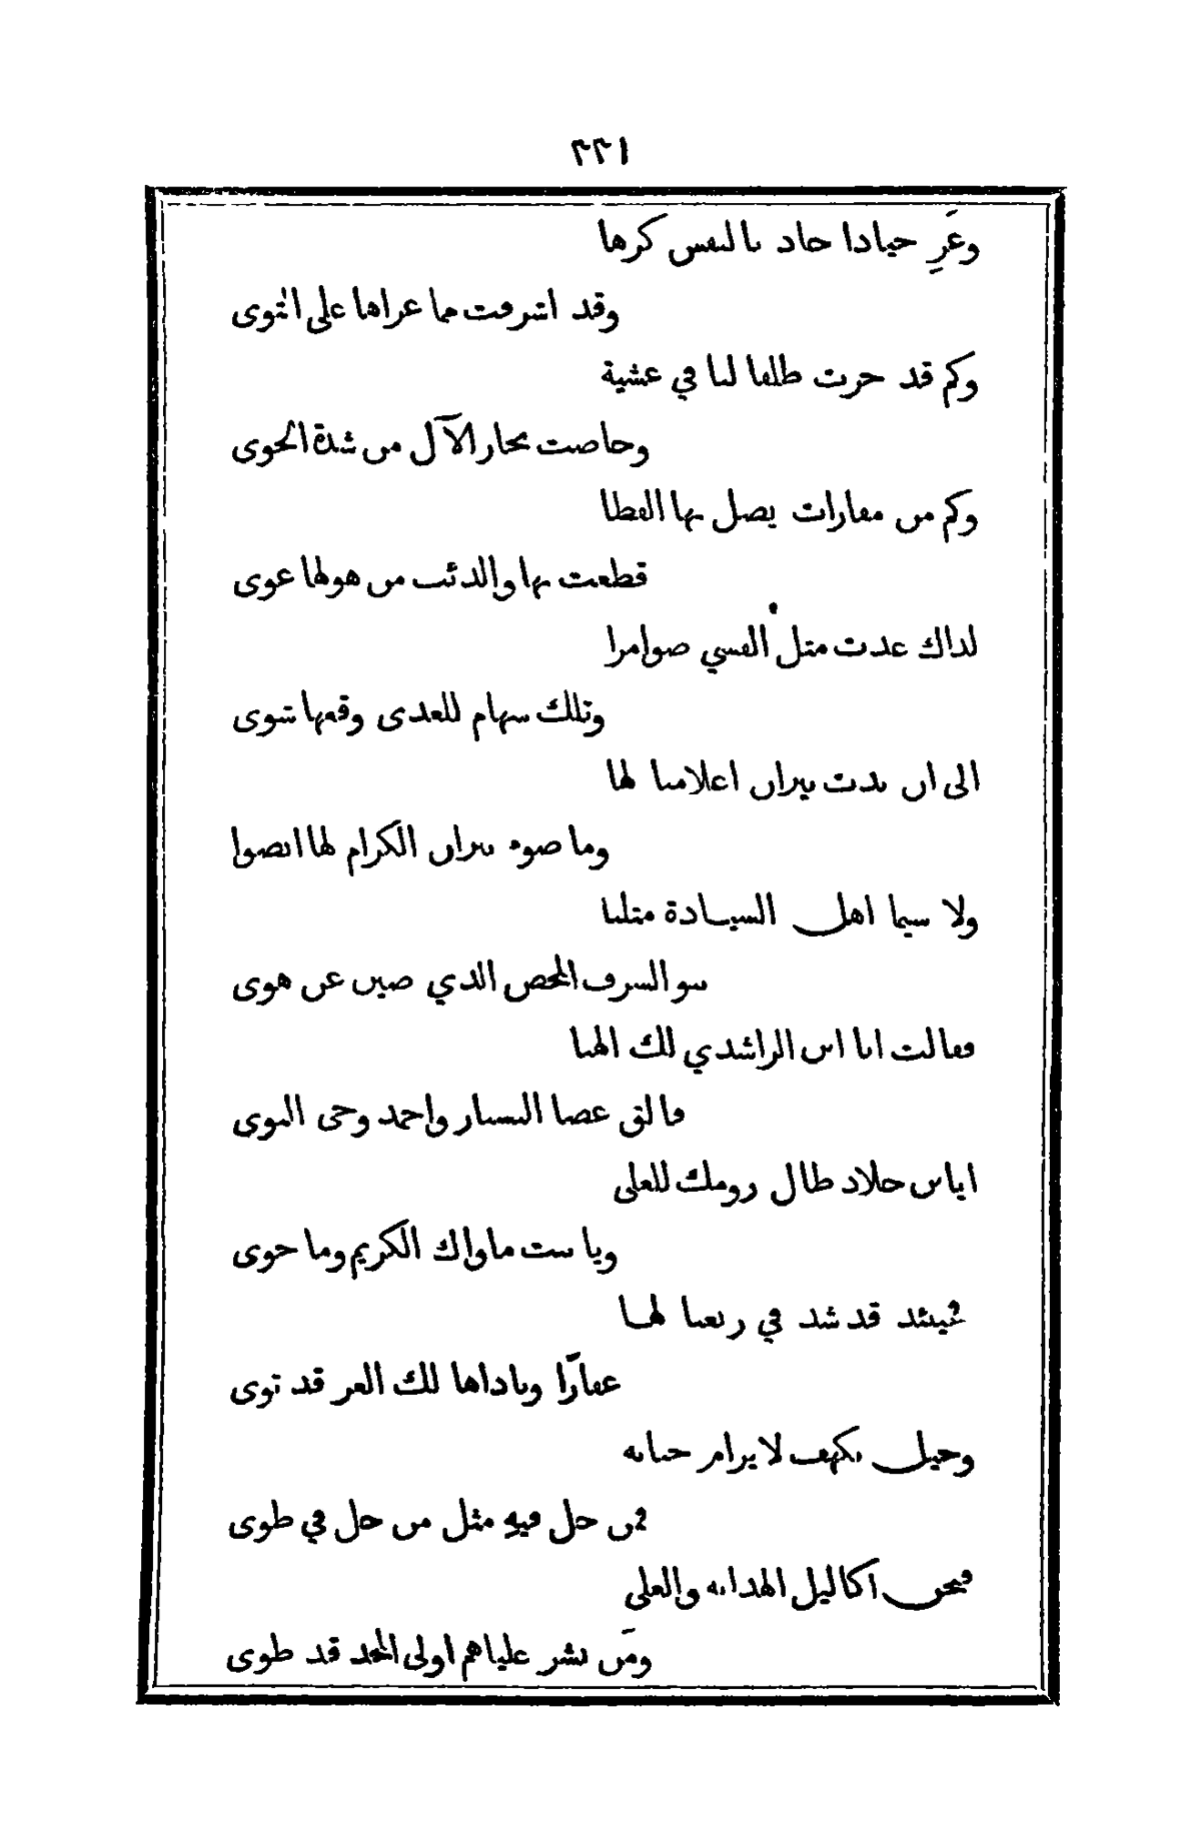 ٢٢١
وعَرِ جيادا جاد بالنفس كرها
وقد اشرفت مما عراها على التوى
وكم قد جرت طلقا لنا في عشية
وخاضت بحار الآل من شدة الجوى
وكم من مفازات يضل بها القطا
قطعت بها والذئب من هولها عوى
لذاك غدت مثل القسي ضوامرا
وتلك سهام للعدى وقعها شوى
الى ان بدت نيران اعلامنا لها
وما ضوء نيران الكرام لها انضوا
ولا سيما اهل السيادة مثلنا
بنو الشرف المحض الذي صين عن هوى
فقالت انا ابن الراشدي لك الهنا
فالق عصا التسيار واحمد وحى النوى
ايا بن خلاد طال رومك للعلى
ويا بنت ماواك الكريم وما حوى
فحينئذ قد شد في ربعنا لها
عقارًا وناداها لك العز قد ثوى
وحيل بكهف لا يرام جنابه
فمن حل فيهِ مثل من حل في طوى
فنحن اكاليل الهداية والعلى
ومَن نشر علياهم اولى المجد قد طوى